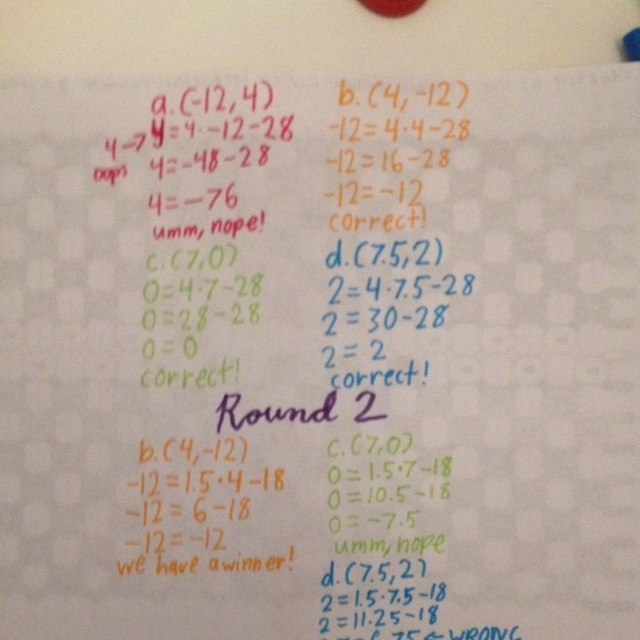 a. (-12,4)
4→ y=4·-12-28
oops 4=-48-28
4=-76
umm, nope!
b. (4,-12)
-12=4·4-28
-12=16-28
-12=-12
correct!
c. (7,0)
0=4·7-28
0=28-28
0=0
correct!
d. (7.5,2)
2=4·7.5-28
2=30-28
2=2
correct!
Round 2
b. (4,-12)
-12=1.5·4-18
-12=6-18
-12=-12
we have a winner!
c. (7,0)
0=1.5·7-18
0=10.5-18
0=-7.5
umm, nope
d. (7.5,2)
2=1.5·7.5-18
2=11.25-18
WRONG